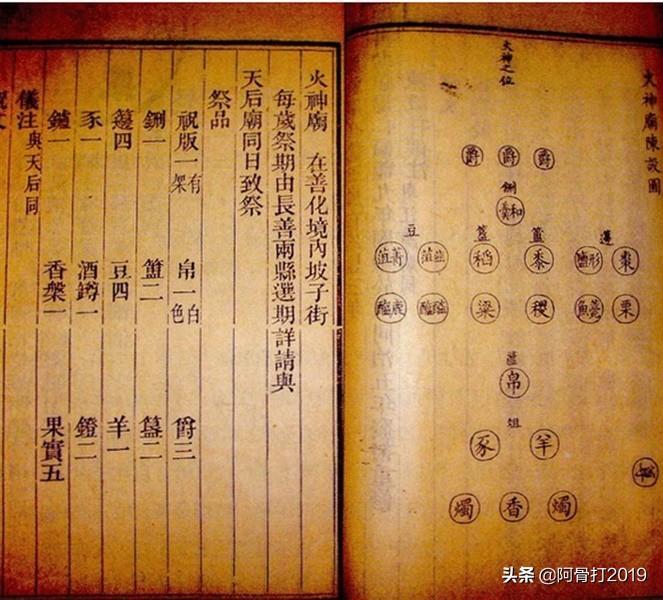 火神廟陳設圖
火神之位
爵 爵 爵
鉶
和羹
豆 簠 簋 籩
菁菹 韭菹 稻 黍 形鹽 棗
鹿醢 醓醢 梁 稷 薧魚 栗
篚
帛
俎
豕 羊
祝
燭 香 燭
火神廟 在善化境內坡子街
每歲祭期由長善兩縣選期詳請與
天后廟同日致祭
祭品
祝版一有架 帛一白色 爵三
鉶一 簠二 簋二
籩四 豆四 羊一
豕一 酒罇一 鐙二
鑪一 香槃一 果實五
儀注與天后同
头条 @阿骨打2019